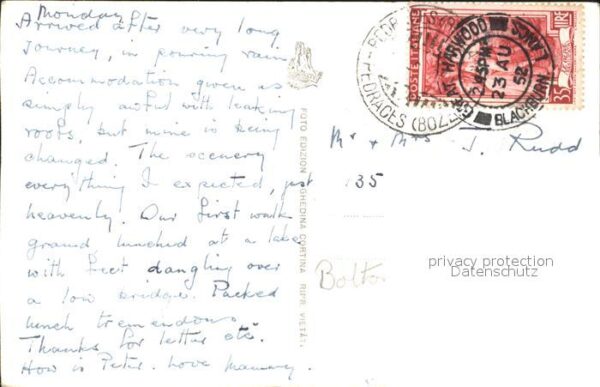 Monday
Arrived after very long
journey, in pouring rain
Accommodation given us
simply awful with leaking
roofs, but mine is being
changed. The scenery
everything I expected, just
heavenly. Our first walk
grand lunched at a lake
with feet dangling over
a low bridge. Packed
lunch tremendous
Thanks for letter etc.
How is Peter. Love
FOTO EDIZION GHEDINA CORTINA RIPR. VIETATA
PEDRACES (BOLZ
POSTE ITALIANE
LIRE
35
GREAT HARWOOD
BLACKBURN LANCS
2.45 PM
23 AU
52
Mr + Mrs J. Rudd
135
Bolton
privacy protection
Datenschutz